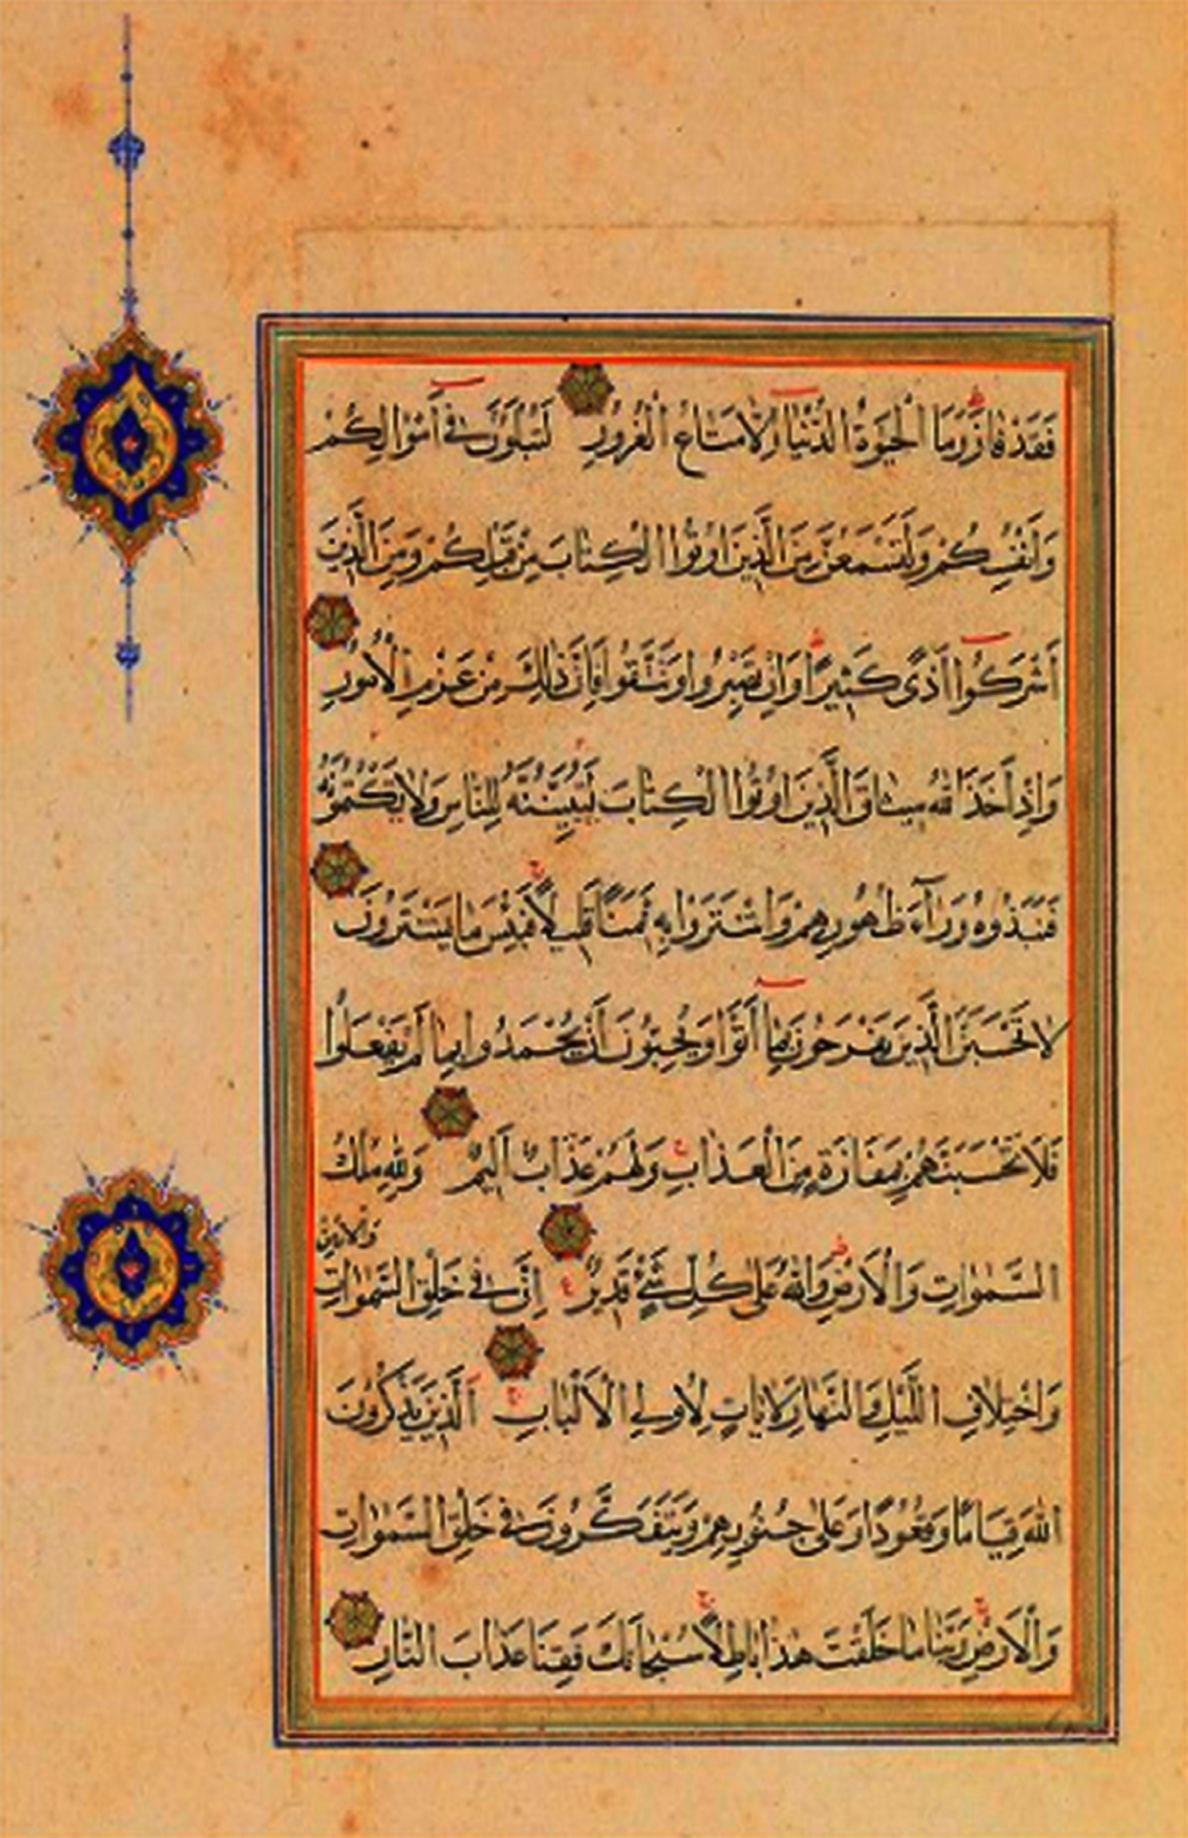 فَقَدْ فَازَ وَمَا الْحَيٰوةُ الدُّنْيَا اِلَّا مَتَاعُ الْغُرُورِ لَتُبْلَوُنَّ فِي اَمْوَالِكُمْ
وَاَنْفُسِكُمْ وَلَتَسْمَعُنَّ مِنَ الَّذِينَ اُوتُوا الْكِتَابَ مِنْ قَبْلِكُمْ وَمِنَ الَّذِينَ
اَشْرَكُوا اَذًى كَثِيرًا وَاِنْ تَصْبِرُوا وَتَتَّقُوا فَاِنَّ ذٰلِكَ مِنْ عَزْمِ الْاُمُورِ
وَاِذْ اَخَذَ اللّٰهُ مِيثَاقَ الَّذِينَ اُوتُوا الْكِتَابَ لَتُبَيِّنُنَّهُ لِلنَّاسِ وَلَا تَكْتُمُونَهُ
فَنَبَذُوهُ وَرَآءَ ظُهُورِهِمْ وَاشْتَرَوْا بِهِ ثَمَنًا قَلِيلًا فَبِئْسَ مَا يَشْتَرُونَ
لَا تَحْسَبَنَّ الَّذِينَ يَفْرَحُونَ بِمَا اَتَوْا وَيُحِبُّونَ اَنْ يُحْمَدُوا بِمَا لَمْ يَفْعَلُوا
فَلَا تَحْسَبَنَّهُمْ بِمَفَازَةٍ مِنَ الْعَذَابِ وَلَهُمْ عَذَابٌ اَلِيمٌ وَلِلّٰهِ مُلْكُ
السَّمٰوَاتِ وَالْاَرْضِ وَاللّٰهُ عَلٰى كُلِّ شَيْءٍ قَدِيرٌ اِنَّ فِي خَلْقِ السَّمٰوَاتِ وَالْاَرْضِ
وَاخْتِلَافِ اللَّيْلِ وَالنَّهَارِ لَاٰيَاتٍ لِاُولِي الْاَلْبَابِ اَلَّذِينَ يَذْكُرُونَ
اللّٰهَ قِيَامًا وَقُعُودًا وَعَلٰى جُنُوبِهِمْ وَيَتَفَكَّرُونَ فِي خَلْقِ السَّمٰوَاتِ
وَالْاَرْضِ رَبَّنَا مَا خَلَقْتَ هٰذَا بَاطِلًا سُبْحَانَكَ فَقِنَا عَذَابَ النَّارِ